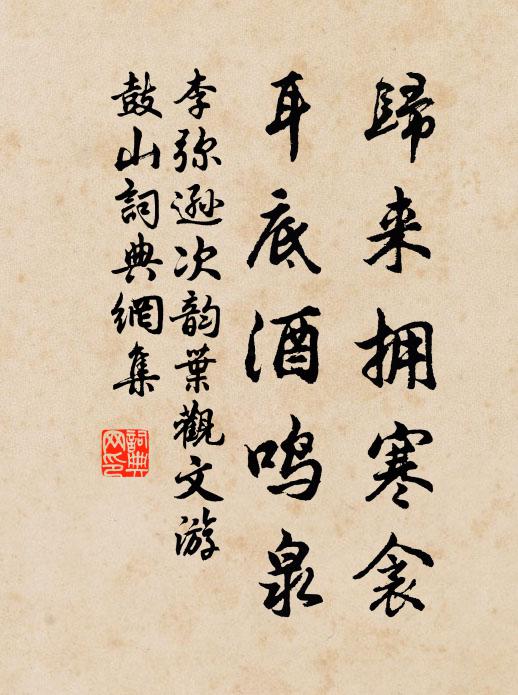 歸来拥寒衾
耳底酒鸣泉
李弥逊次韵葉觀文游
鼓山詞典網集
詞典网印